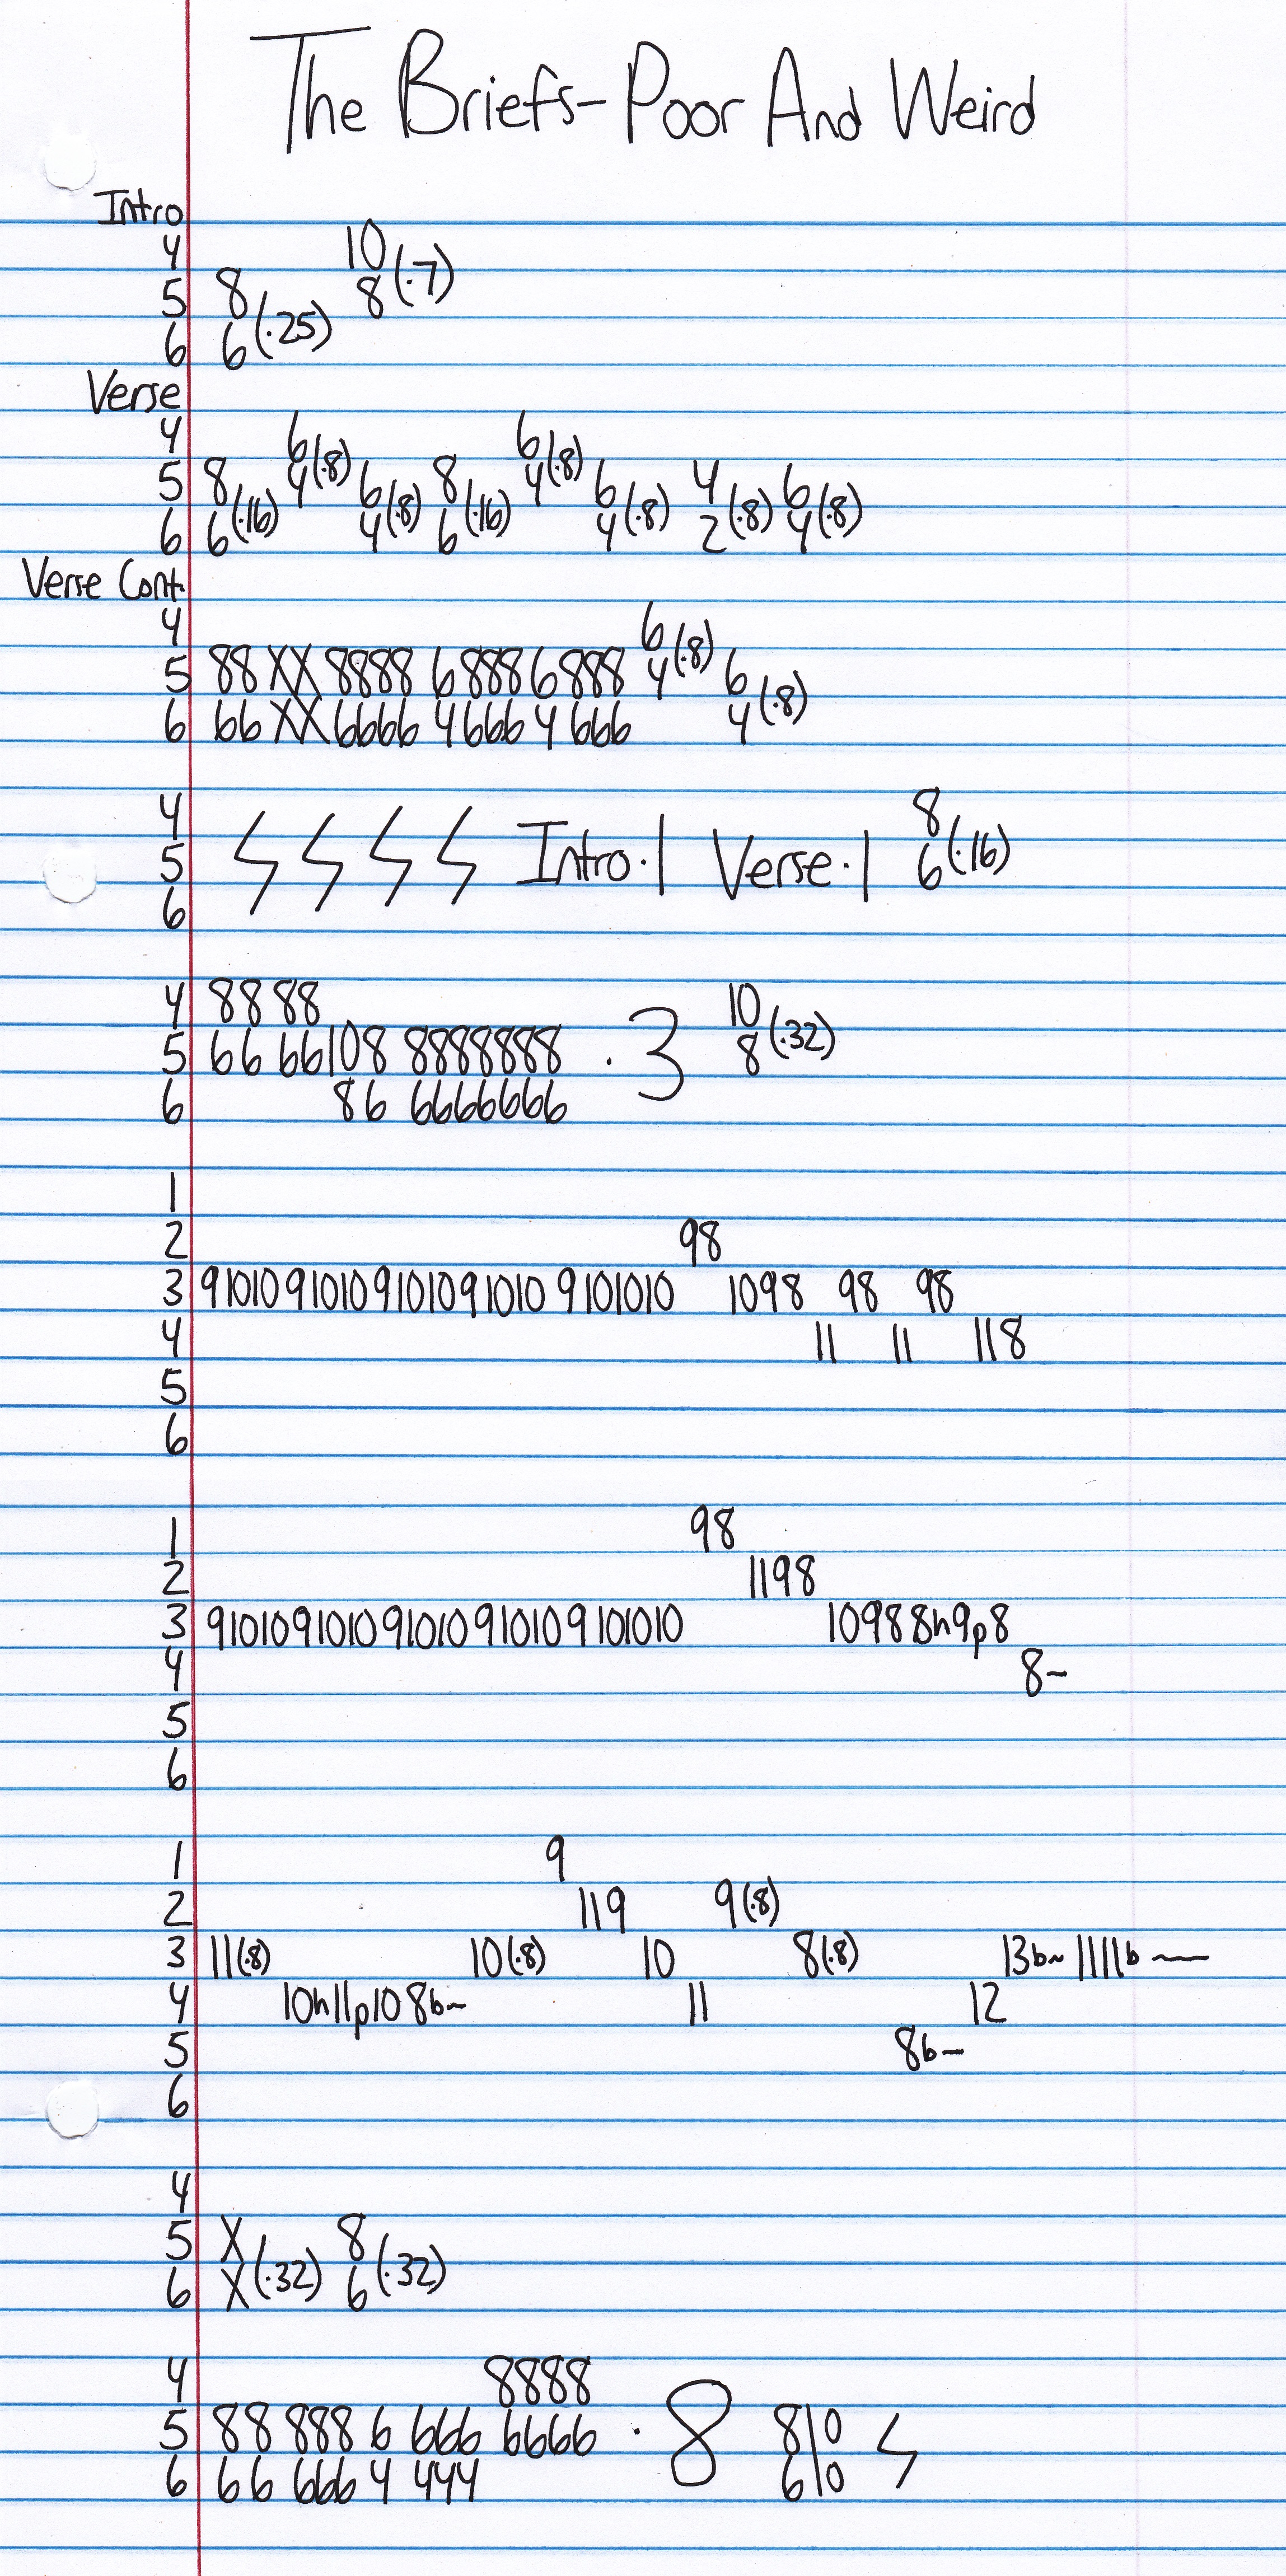 The Briefs-Poor And Weird
Intro
4 10
5 8 8(·7)
6 6(·25)
Verse
4 6 6
5 8 4(·8) 6 8 4(·8) 6 4 6
6 6(·16) 4(·8) 6(·16) 4(·8) 2(·8) 4(·8)
Verse Cont.
4 6
5 88 XX 8888 6 888 6 888 4(·8) 6
6 66 XX 6666 4 666 4 666 4(·8)
4 8
5 Intro·1 Verse·1 6(·16)
6
4 88 88 10
5 66 66 108 8888888 ·3 8(·32)
6 86 6666666
1
2 98
3 91010 91010 91010 91010 9101010 1098 98 98
4 11 11 118
5
6
1 98
2 1198
3 91010 91010 91010 91010 9101010 1098 8h9p8
4 8~
5
6
1 9
2 119 9(·8)
3 11(·8) 10(·8) 10 8(·8) 13b~ 1111b—
4 10h11p10 8b~ 11 12
5 8b~
6
4
5 X 8
6 X(·32) 6(·32)
4 8888
5 88 888 6 666 6666 ·8 810
6 66 666 4 444 610